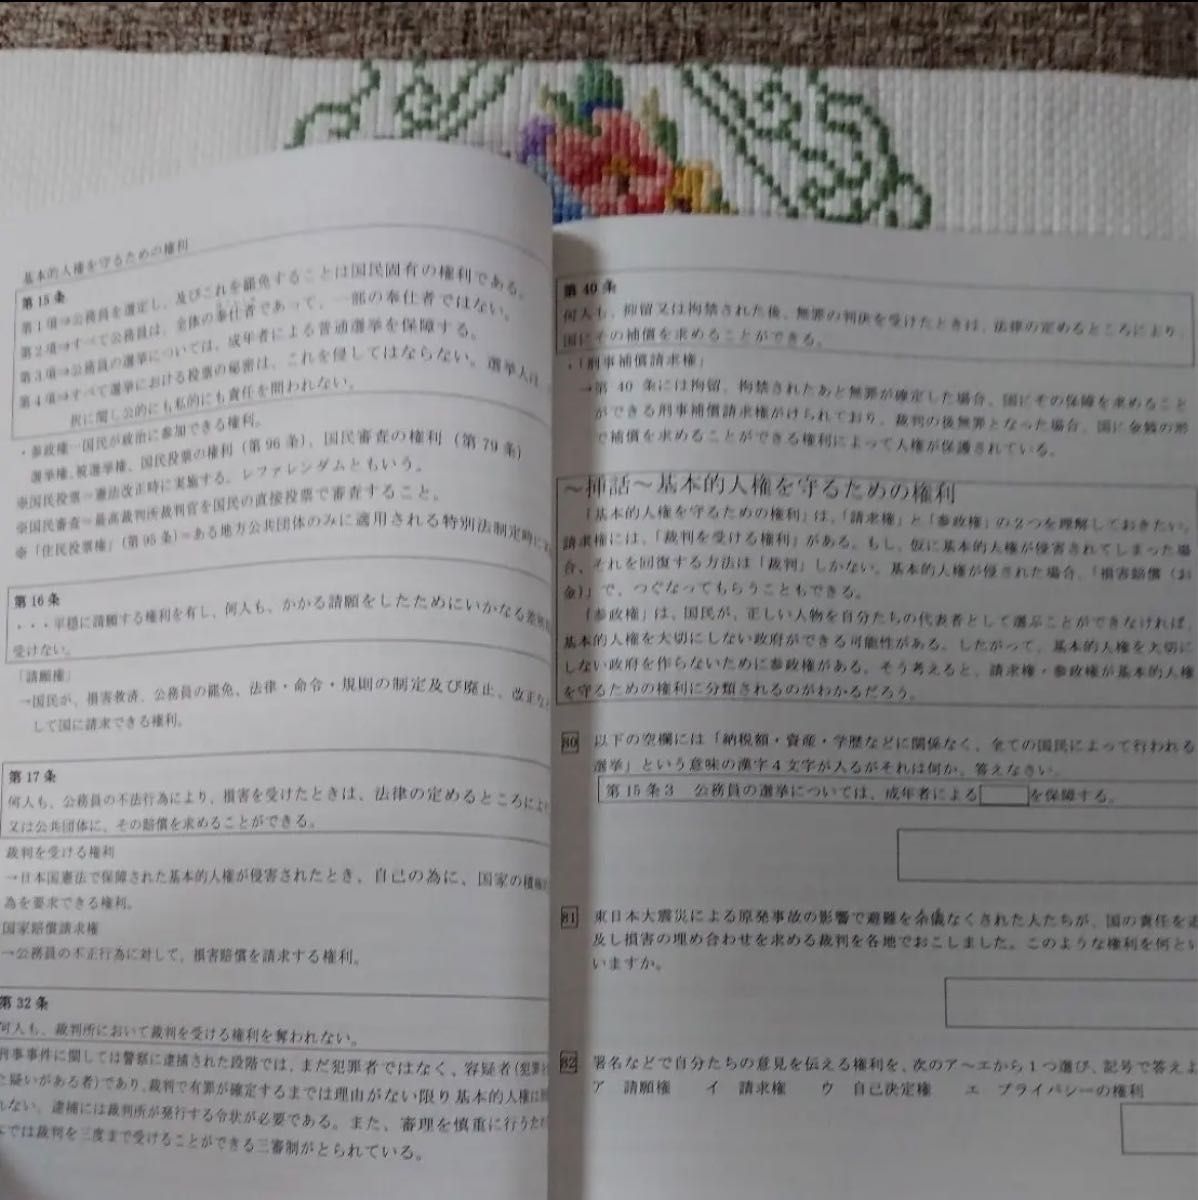 基本的人権を守るための権利
第15条
第1項⇒公務員を選定し、及びこれを罷免することは国民固有の権利である。
第2項⇒すべて公務員は、全体の奉仕者であって、一部の奉仕者ではない。
第3項⇒公務員の選挙については、成年者による普通選挙を保障する。
第4項⇒すべて選挙における投票の秘密は、これを侵してはならない。選挙人は、
択に関し公的にも私的にも責任を問われない。
・参政権―国民が政治に参加できる権利。
選挙権、被選挙権、国民投票の権利(第96条)、国民審査の権利(第79条)
※国民投票＝憲法改正時に実施する。レファレンダムともいう。
※国民審査＝最高裁判所裁判官を国民の直接投票で審査すること。
※「住民投票権」(第95条)＝ある地方公共団体のみに適用される特別法制定時に
第16条
・・・平穏に請願する権利を有し、何人も、かかる請願をしたためにいかなる差別
受けない。
「請願権」
→国民が、損害救済、公務員の罷免、法律・命令・規則の制定及び廃止、改正な
して国に請求できる権利。
第17条
何人も、公務員の不法行為により、損害を受けたときは、法律の定めるところにより
又は公共団体に、その賠償を求めることができる。
裁判を受ける権利
→日本国憲法で保障された基本的人権が侵害されたとき、自己の為に、国家の積極
為を要求できる権利。
国家賠償請求権
→公務員の不正行為に対して、損害賠償を請求する権利。
第32条
何人も、裁判所において裁判を受ける権利を奪われない。
刑事事件に関しては警察に逮捕された段階では、まだ犯罪者ではなく、容疑者(犯罪
た疑いがある者)であり、裁判で有罪が確定するまでは理由がない限り基本的人権は
れない。逮捕には裁判所が発行する令状が必要である。また、審理を慎重に行うため
では裁判を三度まで受けることができる三審制がとられている。
第40条
何人も、抑留又は拘禁された後、無罪の判決を受けたときは、法律の定めるところにより、
国にその補償を求めることができる。
・「刑事補償請求権」
→第40条には拘留、拘禁されたあと無罪が確定した場合、国にその保障を求めること
ができる刑事補償請求権がけられており、裁判の後無罪となった場合、国に金銭の形
で補償を求めることができる権利によって人権が保護されている。
～挿話～基本的人権を守るための権利
「基本的人権を守るための権利」は、「請求権」と「参政権」の2つを理解しておきたい。
請求権には、「裁判を受ける権利」がある。もし、仮に基本的人権が侵害されてしまった場
合、それを回復する方法は「裁判」しかない。基本的人権が侵された場合、「損害賠償（お
金）」で、つぐなってもらうこともできる。
「参政権」は、国民が、正しい人物を自分たちの代表者として選ぶことができなければ、
基本的人権を大切にしない政府ができる可能性がある。したがって、基本的人権を大切に
しない政府を作らないために参政権がある。そう考えると、請求権・参政権が基本的人権
を守るための権利に分類されるのがわかるだろう。
80 以下の空欄には「納税額・資産・学歴などに関係なく、全ての国民によって行われる
選挙」という意味の漢字4文字が入るがそれは何か、答えなさい。
第15条3 公務員の選挙については、成年者による を保障する。
81 東日本大震災による原発事故の影響で避難を余儀なくされた人たちが、国の責任を追
及し損害の埋め合わせを求める裁判を各地でおこしました。このような権利を何とい
いますか。
82 署名などで自分たちの意見を伝える権利を、次のア～エから1つ選び、記号で答えよ
ア 請願権 イ 請求権 ウ 自己決定権 エ プライバシーの権利